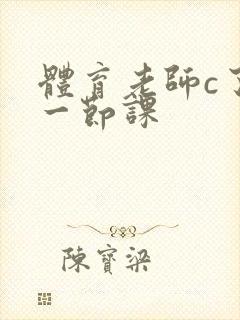 體育老師c了
一節課
陳寶梁